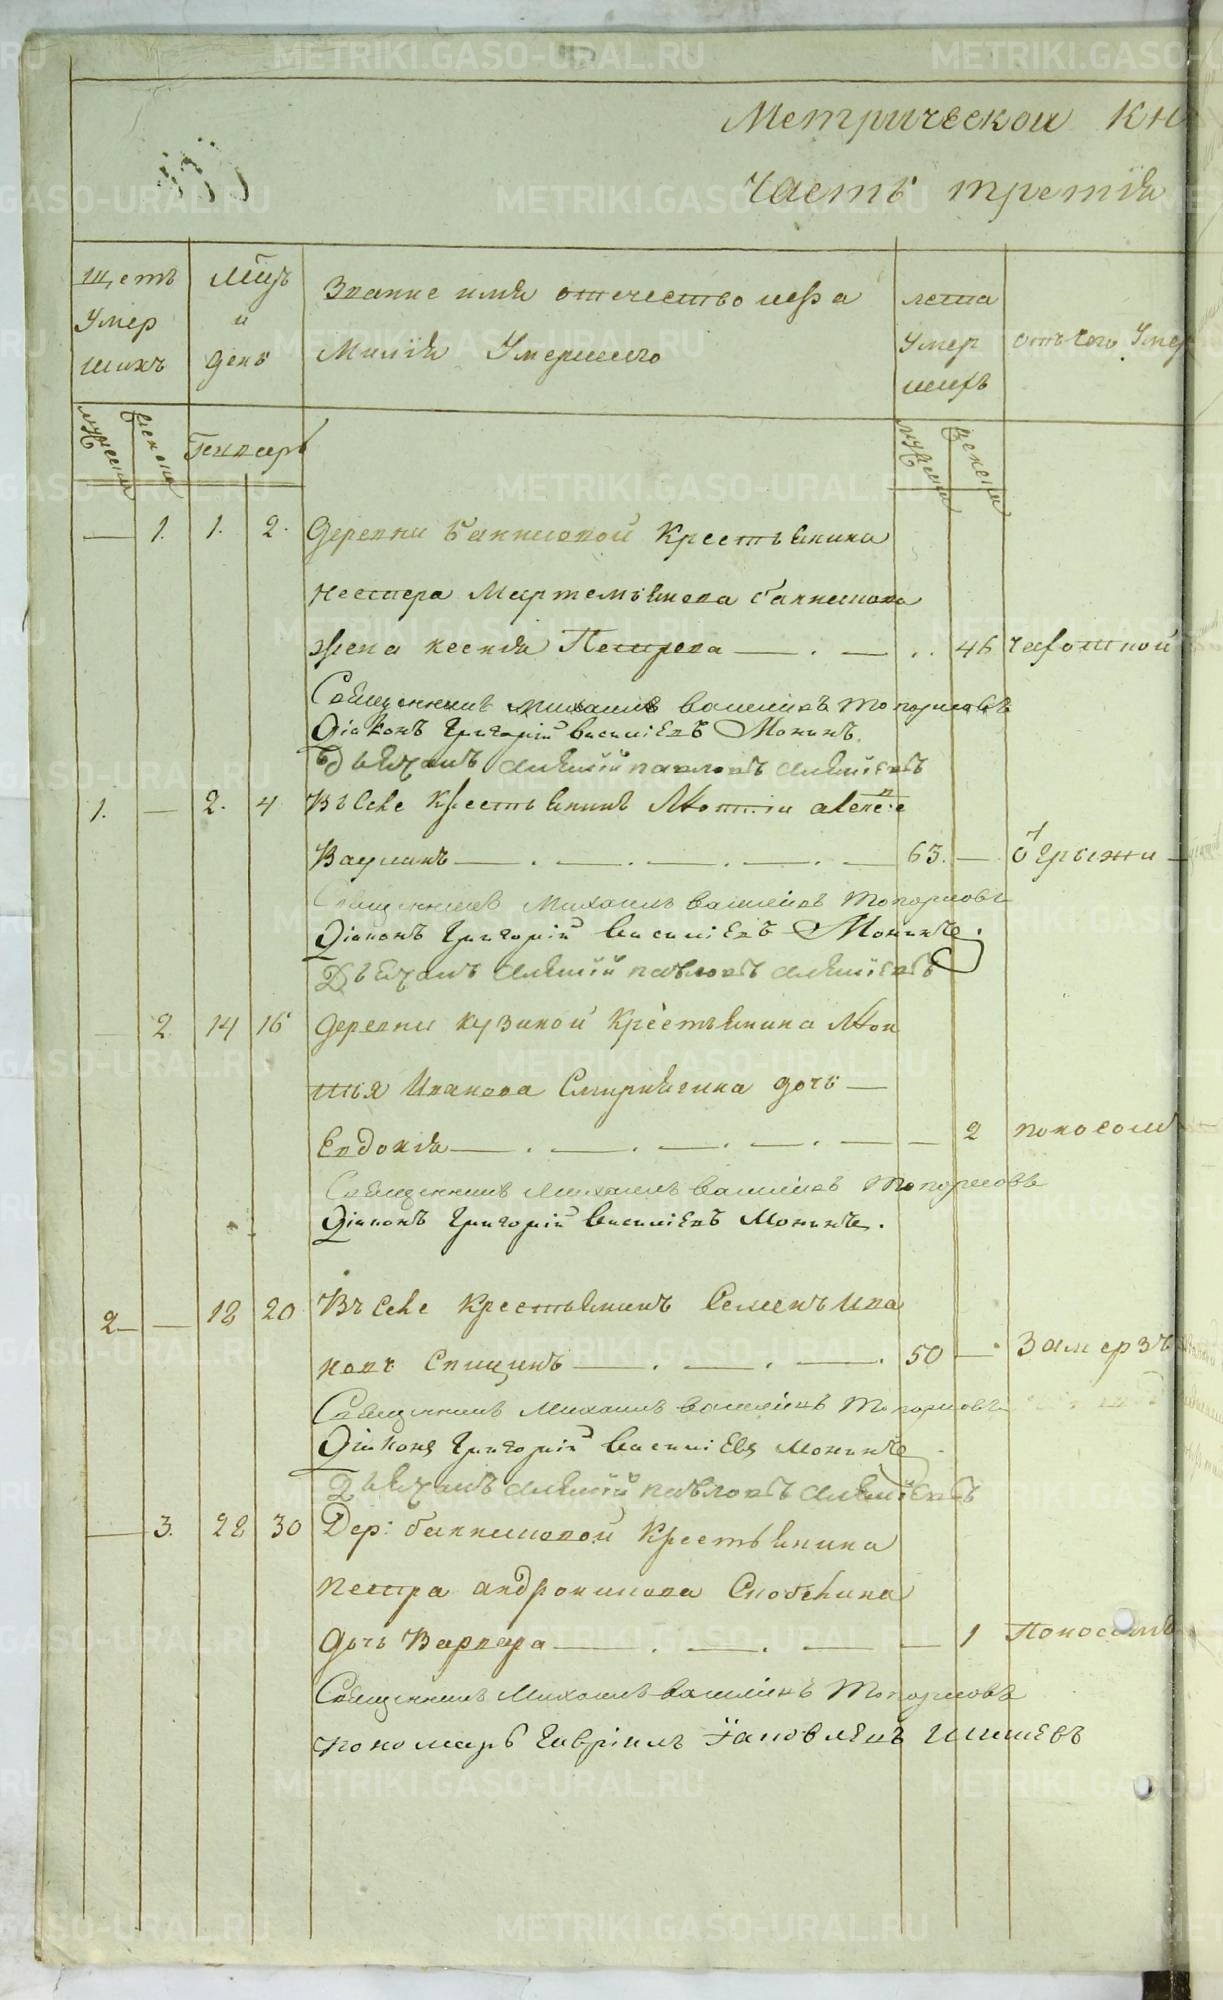 Метрической кн
Часть третия
щетъ
Умер
шихъ
мцъ
и
день
Звание имя отечество и фа
милия Умершего
лета
Умер
шихъ
отъ чего Умер
мужеска
женска
Генварь
мужеска
женска
— 1. 1. 2. Деревни Банниковой крестьянина
Нестера Мартемьянова Банникова
жена ксения Петрова — . — . . 46 чахоткой
Священникъ Михаилъ Васильевъ Топорковъ
Діаконъ Григорій Василіевъ Монинъ.
Дьячокъ Алексій Павловъ Алексіевъ
1. — 2. 4 Въ селе крестьянинъ
Ваулинъ — . — . — . — . — 63. — от грыжи —
Священникъ Михаилъ Васильевъ Топорковъ
Діаконъ Григорій Василіевъ Монинъ.
Дьячокъ Алексій Павловъ Алексіевъ
2 14 16 деревни Кузиной крестьянина
Иванова Смирнягина дочь —
Евдокия — . — . — . — . — — 2 поносом
Священникъ Михаилъ Васильевъ Топорковъ
Діаконъ Григорій Василіевъ Монинъ.
2 — — 18 20 Въ селе крестьянинъ Семенъ Ива
новъ Спицинъ — . — . — . 50 — Замерзъ
Священникъ Михаилъ Васильевъ Топорковъ
Діаконъ Григорій Василіевъ Монинъ
Дьячокъ Алексій Павловъ Алексіевъ
— 3. 28 30 Дер: Банниковой крестьянина
Петра Андроникова
дочь Варвара — . — . — — 1 Поносомъ
Священникъ Михаилъ Васильевъ Топорковъ
Пономарь Гавріилъ Іаковлевъ
METRIKI.GASO-URAL.RU